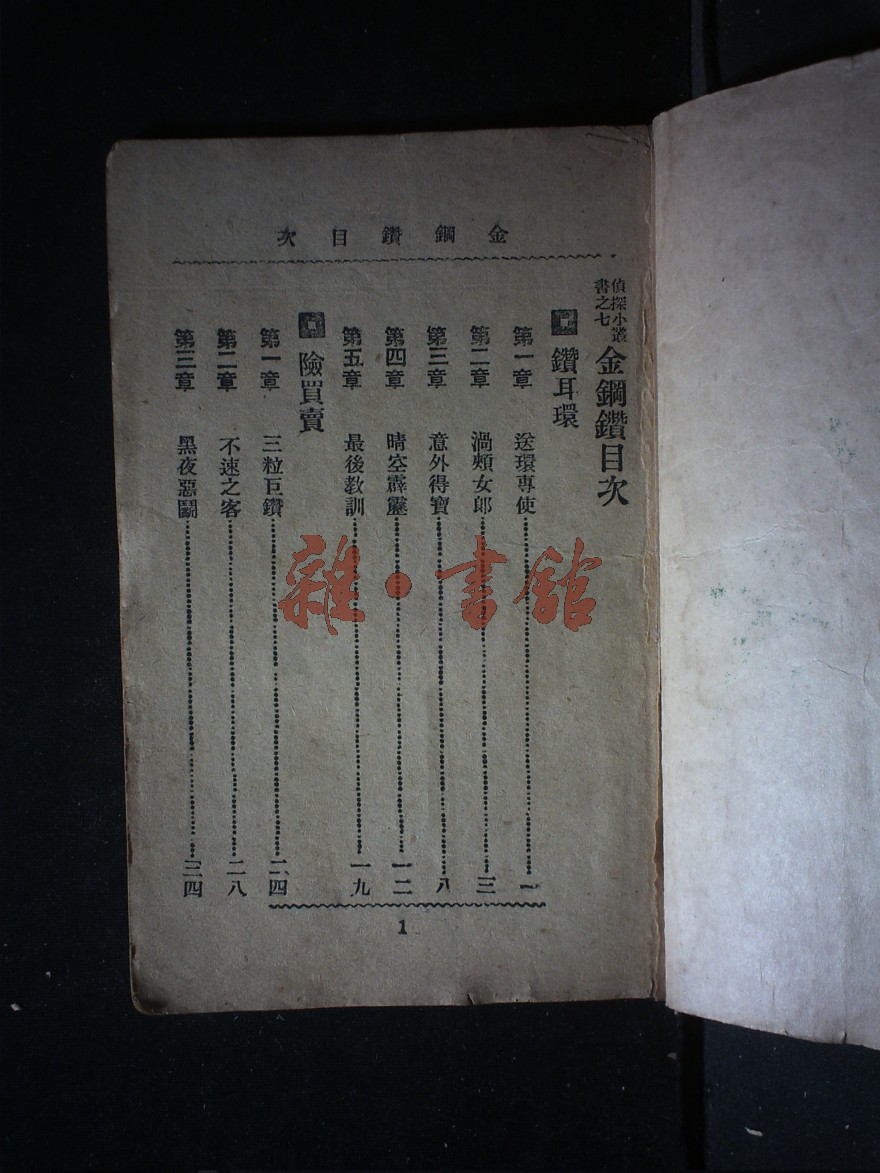 金鋼鑽目次
偵探小叢書之七 金鋼鑽目次
鑽耳環
第一章 送環專使 一
第二章 渦頰女郎 三
第三章 意外得寶 八
第四章 晴空霹靂 一二
第五章 最後教訓 一九
險買賣
第一章 三粒巨鑽 二四
第二章 不速之客 二八
第三章 黑夜惡鬭 三四
1
雜·書館